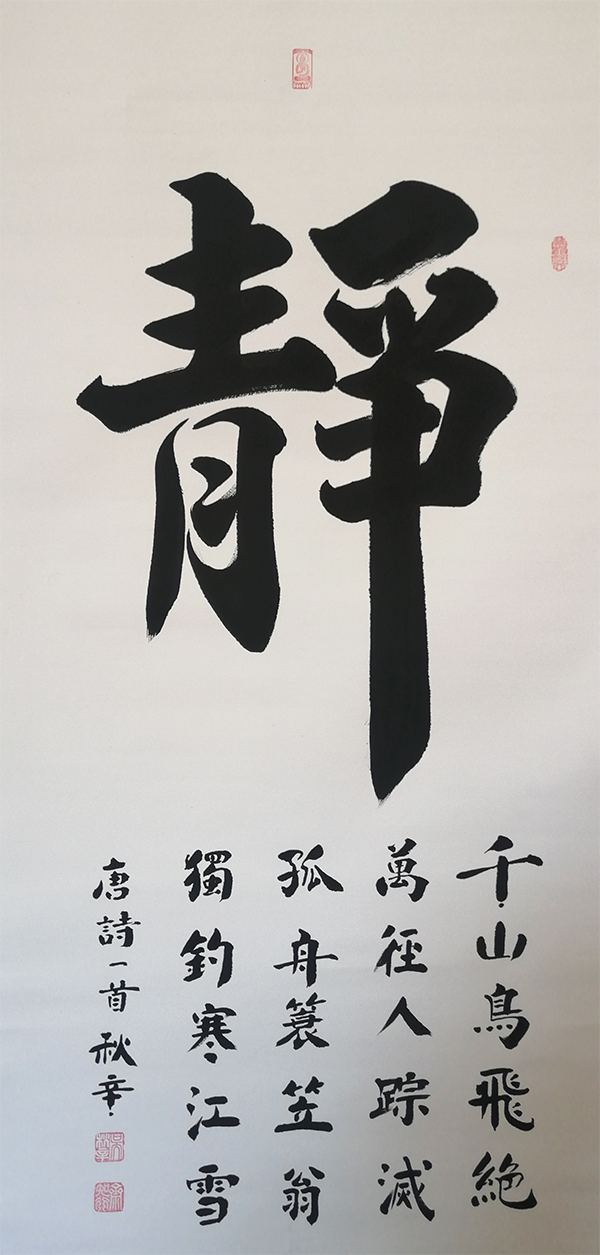 靜
千山鳥飛絕
萬徑人踪滅
孤舟簑笠翁
獨釣寒江雪
唐詩一首 秋辛